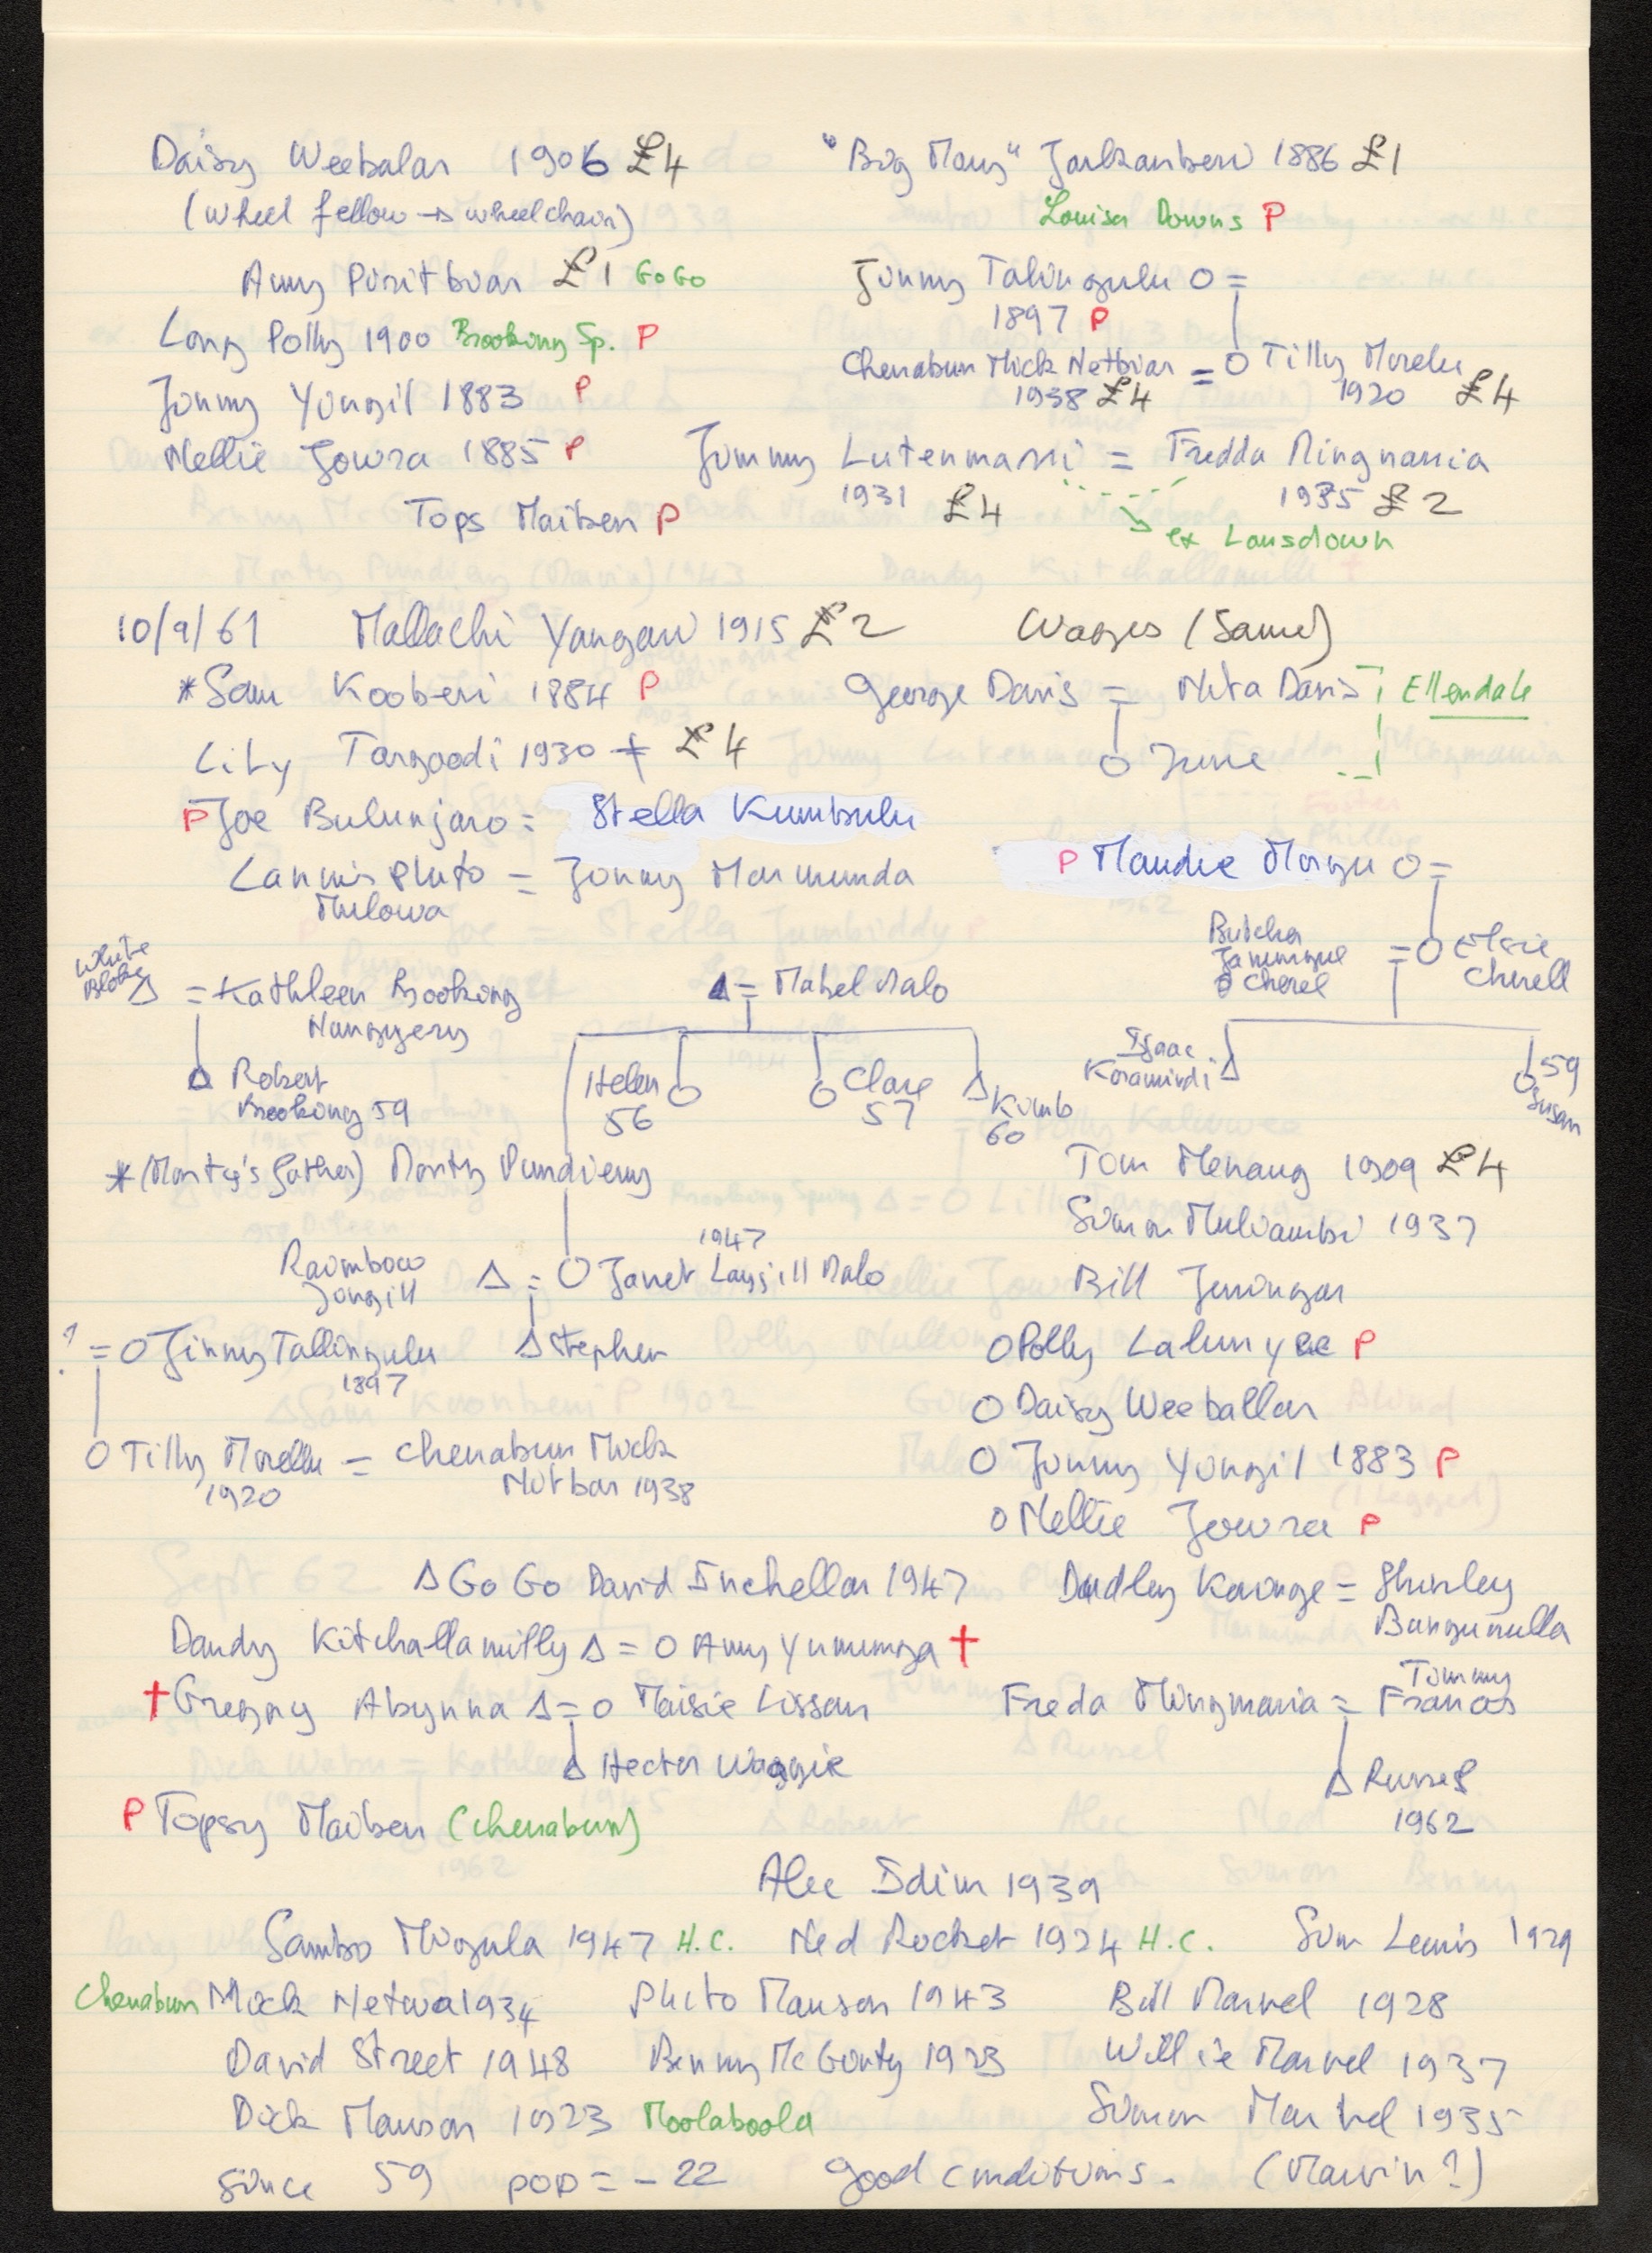 Daisy Weebalar 1906 £4
(wheel fellow → wheelchair)
Amy Piritbuar £1 GoGo
Long Polly 1900 Brooking Sp. P
Jinny Yungil 1883 P
Nellie Jowra 1885 P
Tops Maiben P
"Big Mary" Jarkanberi 1886 £1
Louisa Downs P
Jinny Talingulu O =
1897 P
Chenabun Mick Netbiar = O Tilly Morelu
1938 £4 1920 £4
Jimmy Lutenmarri = Fredda Ningmarria
1931 £4 1935 £2
ex Lansdown
10/9/61 Mallachi Yangawi 1915 £2 Wages (Same)
*Sam Kooberi 1884 P
Lily Targoodi 1930 + £4
P Joe Bulunjaro = Stella Kumbulu
Lannis Pluto = Jinny Marmunda
Mulowa
George Davis = Nita Davis Ellendale
O June
P Maudie Morgu O =
Butcher
Janningue
Cherel
= O Elsie
Cherell
Isaac
Koramirdi Δ
O 59
Susan
White
Bloke Δ = Kathleen Brooking
Nangyery
Δ Robert
Brooking 59
Δ = Mabel Malo
Helen O
56
O Clare
57
Δ Kimb
60
*(Monty's father) Monty Pundieny
Raimbow
Jongill
Δ = O Janet Laysill Malo
1947
Δ Stephen
? = O Jinny Tallingulu
1897
O Tilly Morellu = Chenabun Mick
1920 Nutbar 1938
Tom Menaug 1909 £4
Simon Mulvambi 1937
Bill Jeningar
O Polly Lalunyee P
O Daisy Weeballar
O Jinny Yungil 1883 P
O Nellie Jowra P
Δ Go Go David Inchellar 1947
Dudley Karonge = Shirley
Bangunulla
Dandy Kitchallamilly Δ = O Amy Yumunga †
† Greyny Abynna Δ = O Maisie Lissan
Δ Hector Waggie
Freda Mingmaria = Tommy
Francis
Δ Russel
1962
P Topsy Maiben (Chenabun)
Alec Idim 1939
Sambo Mingula 1947 H.C. Ned Rocket 1924 H.C. Sim Lewis 1929
Chenabun Mick Netwa 1934 Pluto Manson 1943 Bill Marvel 1928
David Street 1948 Benny McGinty 1923 Willie Marvel 1937
Dick Manson 1923 Moolaboola Simon Marvel 1935
since 59 pop = - 22 good conditions. (Marvin?)